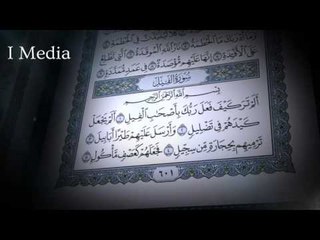 I Media
أَدْرَىٰكَ مَا ٱلْحُطَمَةُ ۝ نَارُ ٱللَّهِ ٱلْمُوقَدَةُ ۝ ٱلَّتِى تَطَّلِعُ
عَلَى ٱلْأَفْـِٔدَةِ ۝ إِنَّهَا عَلَيْهِم مُّؤْصَدَةٌ ۝ فِى عَمَدٍ مُّمَدَّدَةٍ
سُورَةُ ٱلْفِيلِ
بِسْمِ ٱللَّهِ ٱلرَّحْمَٰنِ ٱلرَّحِيمِ
أَلَمْ تَرَ كَيْفَ فَعَلَ رَبُّكَ بِأَصْحَٰبِ ٱلْفِيلِ ۝ أَلَمْ يَجْعَلْ
كَيْدَهُمْ فِى تَضْلِيلٍ ۝ وَأَرْسَلَ عَلَيْهِمْ طَيْرًا أَبَابِيلَ ۝
تَرْمِيهِم بِحِجَارَةٍ مِّن سِجِّيلٍ ۝ فَجَعَلَهُمْ كَعَصْفٍ مَّأْكُولٍۭ
٦٠١